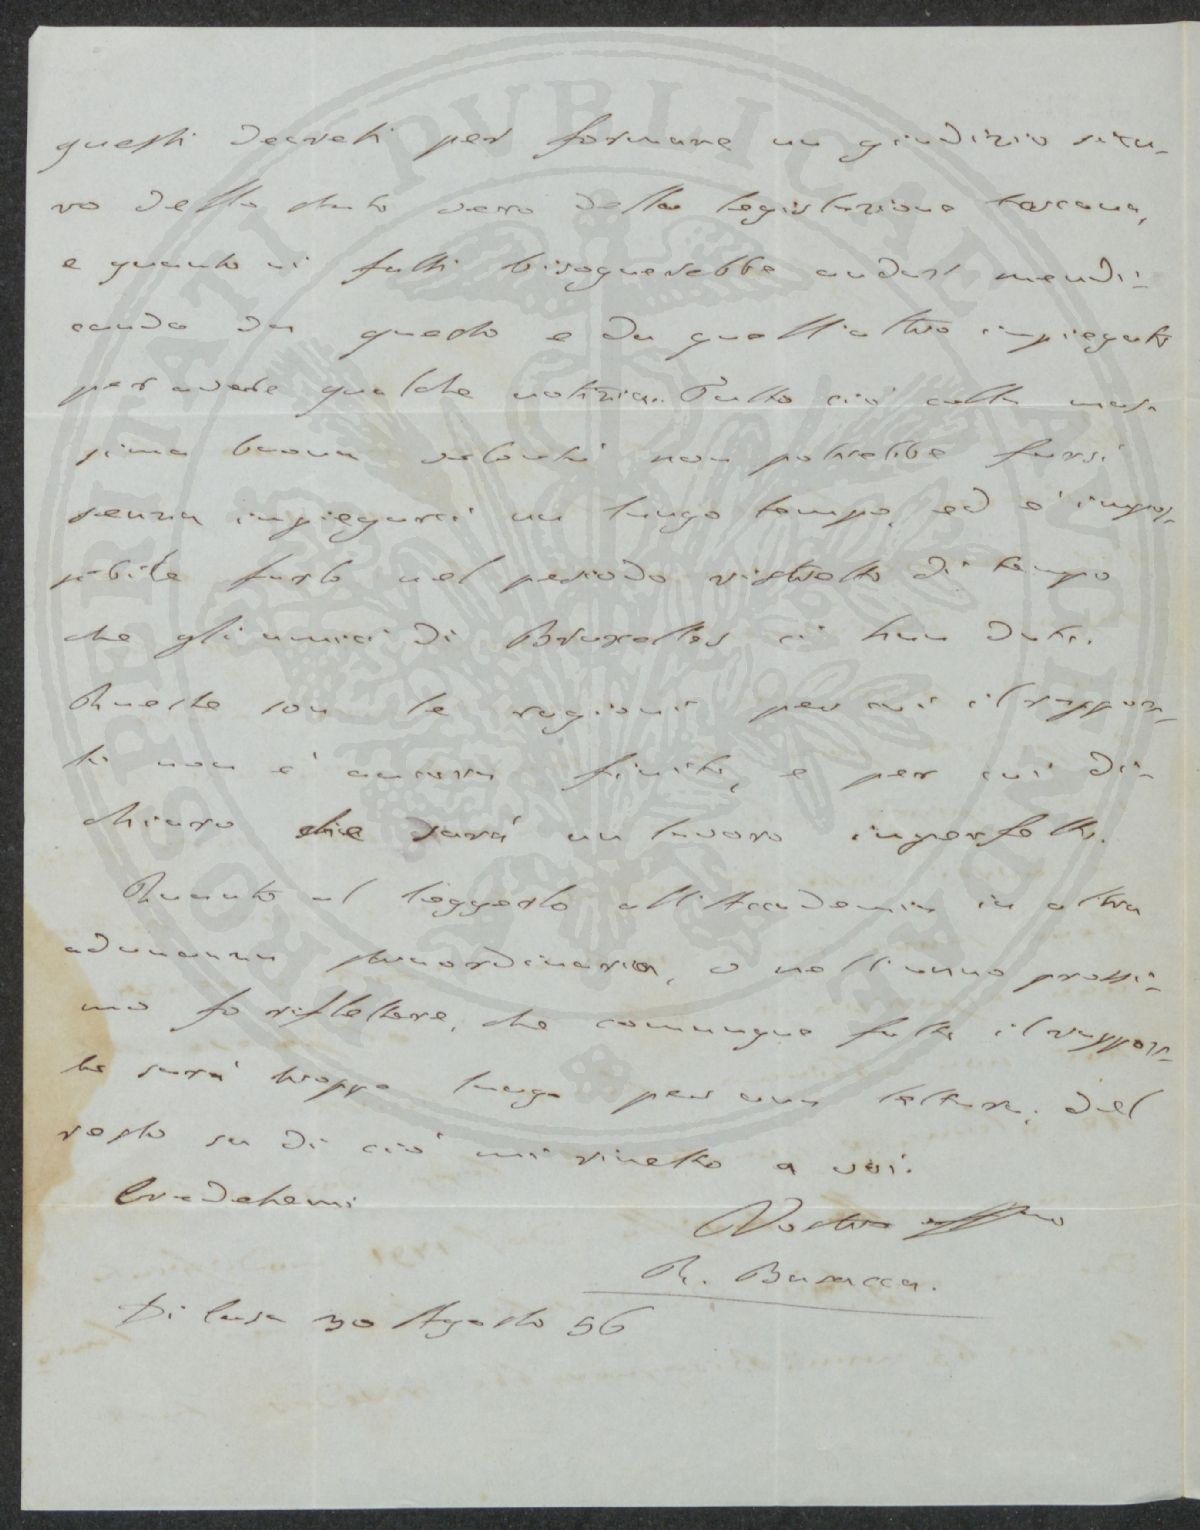 questi decreti per formare un giudizio sicu-
ro dello stato vero della legislazione toscana,
e quanto ai fatti bisognerebbe andar mendi-
cando da questo e da quell'altro impiegato
per avere qualche notizia. Tutto ciò colla mas-
sima buona volontà non potrebbe farsi
senza impiegarci un lungo tempo, ed è impos-
sibile farlo nel periodo ristretto di tempo
che gli amici di Bruxelles ci han dato.
Queste son le ragioni per cui il rappor-
to non è ancora finito, e per cui di-
chiaro che sarà un lavoro imperfetto.
Quanto al leggerlo all'Accademia in altra
adunanza straordinaria, o nell'anno prossi-
mo fo riflettere, che comunque fatto il rappor-
to sarà troppo lungo per una lettura; del
resto su di ciò mi rimetto a voi.
Credetemi
Vostro affmo
R. Busacca.
Di Casa 30 Agosto 56
PROSPERITATI PVBLICAE AVGENDAE